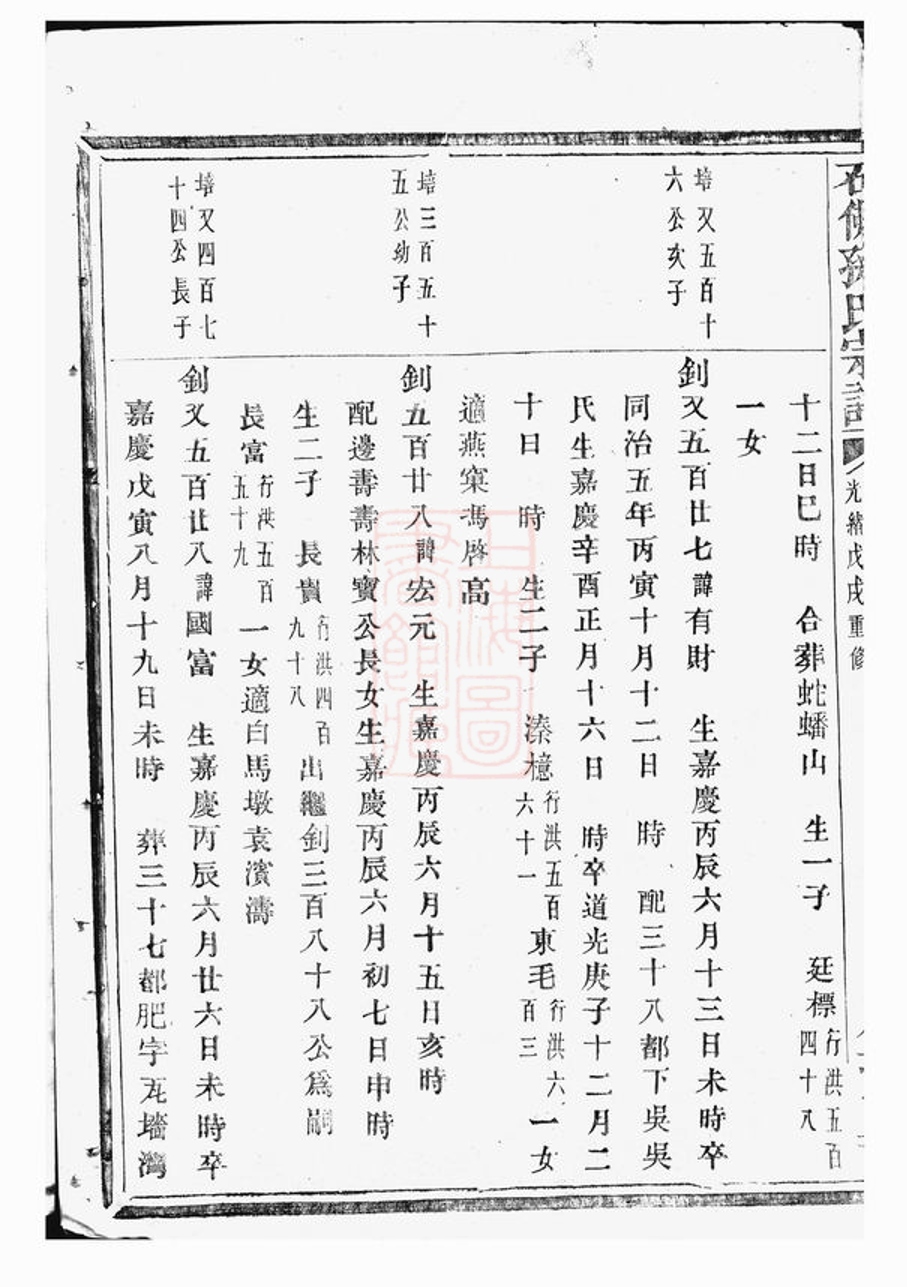 孫氏宗譜 光緒戊戌重修
十二日巳時 合葬蛇蟠山 生一子 廷標行洪五百四十八
一女
培又五百十六公次子
釗又五百廿七諱有財 生嘉慶丙辰六月十三日未時卒
同治五年丙寅十月十二日 時 配三十八都下吳吳
氏生嘉慶辛酉正月十六日 時卒道光庚子十二月二
十日 時 生二子 溱檍行洪五百六十一東毛行洪六百三一女
適燕窠馮啓高
培三百五十五公幼子
釗五百廿八諱宏元 生嘉慶丙辰六月十五日亥時
配邊壽壽林寶公長女生嘉慶丙辰六月初七日申時
生二子 長貴行洪四百九十八出繼釗三百八十八公爲嗣
長富行洪五百五十九一女適白馬墩袁濱濤
培又四百七十四公長子
釗又五百廿八諱國富 生嘉慶丙辰六月廿六日未時卒
嘉慶戊寅八月十九日未時 葬三十七都肥字瓦墻灣
上海圖書館藏